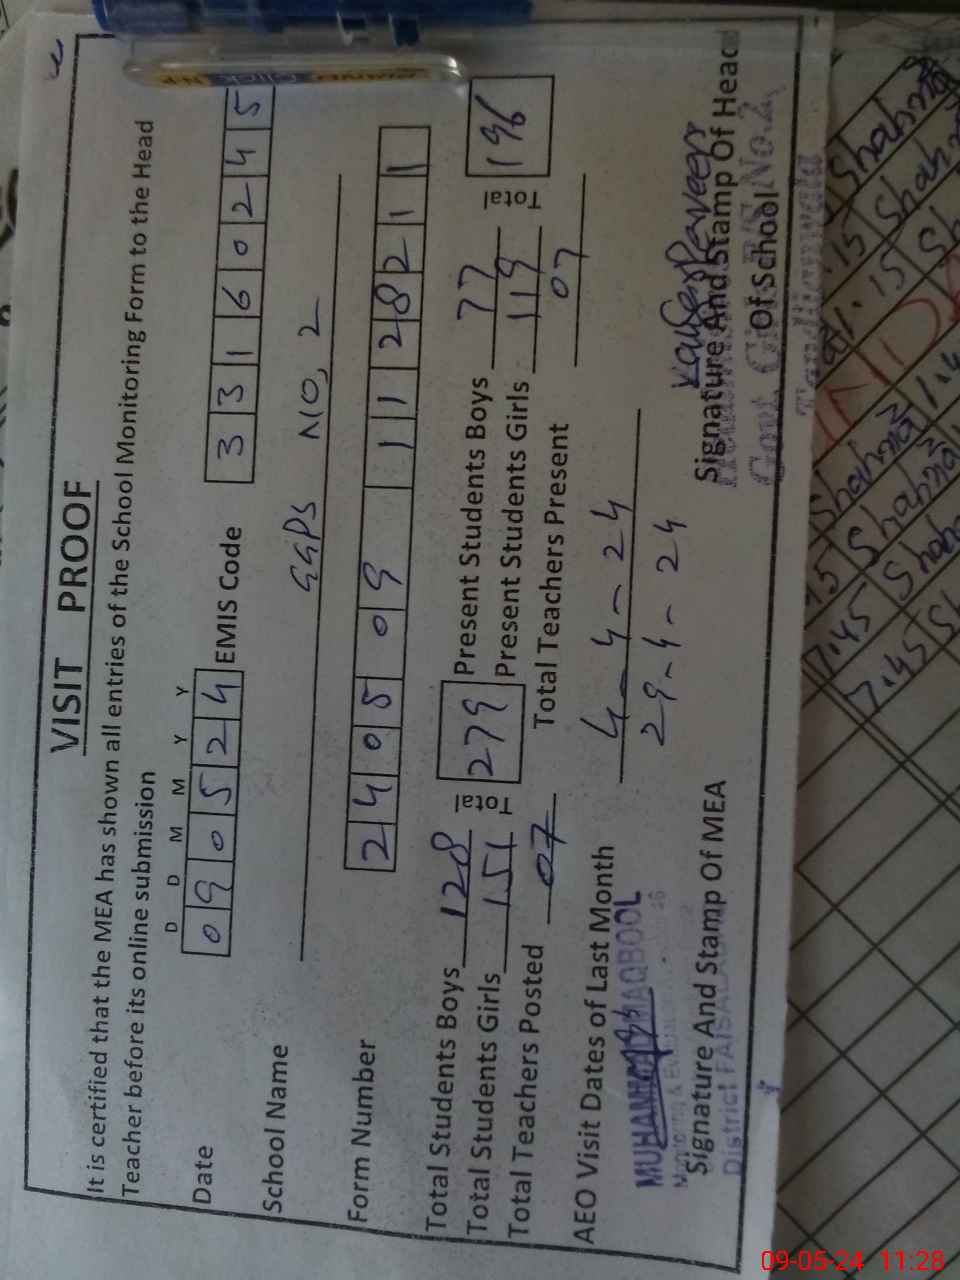 VISIT PROOF
It is certified that the MEA has shown all entries of the School Monitoring Form to the Head
Teacher before its online submission
D D M M Y Y
Date 090524 EMIS Code 33160245
School Name GGPS NO, 2
Form Number 240509 1128211
Total Students Boys 128 Total 279 Present Students Boys 77 Total 196
Total Students Girls 151 Present Students Girls 119
Total Teachers Posted 07 Total Teachers Present 07
AEO Visit Dates of Last Month 4-4-24
29-4-24
MUHAMMAD MAQBOOL
Signature And Stamp Of MEA
District FAISALABAD
Signature And Stamp Of Head
Of School
Govt. Girls P/S No.2
Tandlianwala
7.45 Shah
7.45 Sh
09-05-24 11:28